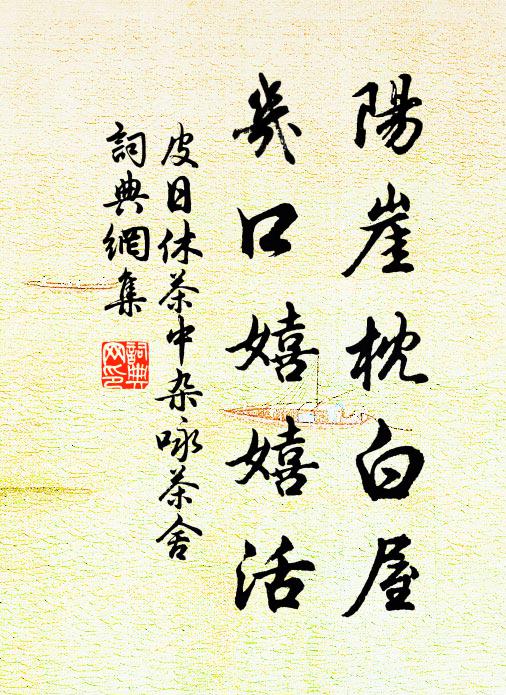 陽崖枕白屋
幾口嬉嬉活
皮日休茶中杂咏茶舍
詞典網集
詞典网印